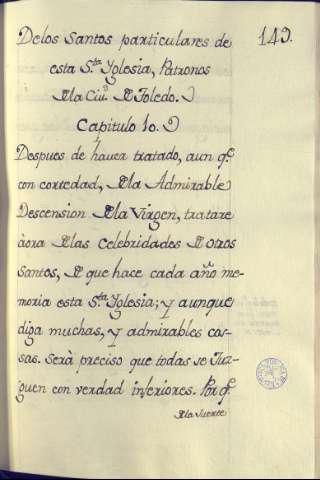 149.
Delos Santos particulares de
esta S.ta Yglesia, Patronos
Dela Ciu.d De Toledo.
Capitulo 10.
Despues de haver tratado, aun q.e
con cortedad, Dela Admirable
Descension Dela Virgen, tratare
àora Delas Celebridades De otros
Santos, De que hace cada año me-
moria esta S.ta Yglesia; Y aunque
diga muchas, Y admirables co-
sas. Serà preciso que todas se Juz-
guen con verdad inferiores. Por q.e
Dela suerte